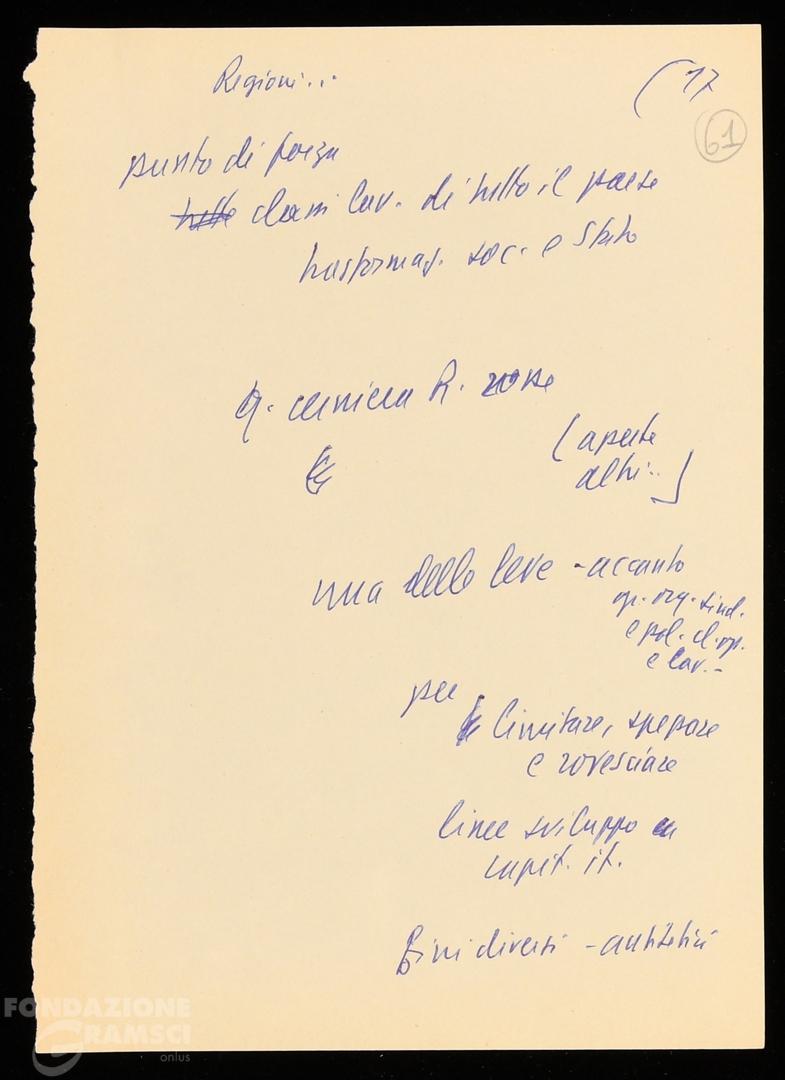 Regioni...
(17
61
punto di forza
tutte classi lav. di tutto il paese
trasformaz. soc. e Stato
q. cerniera R. rosse
(aperte
altri..)
una delle leve - accanto
op. org. sind.
e pol. cl. op.
e lav. -
per
limitare, spezzare
e rovesciare
linee sviluppo
capit. it.
Fini diversi - antitetici
FONDAZIONE
GRAMSCI
onlus